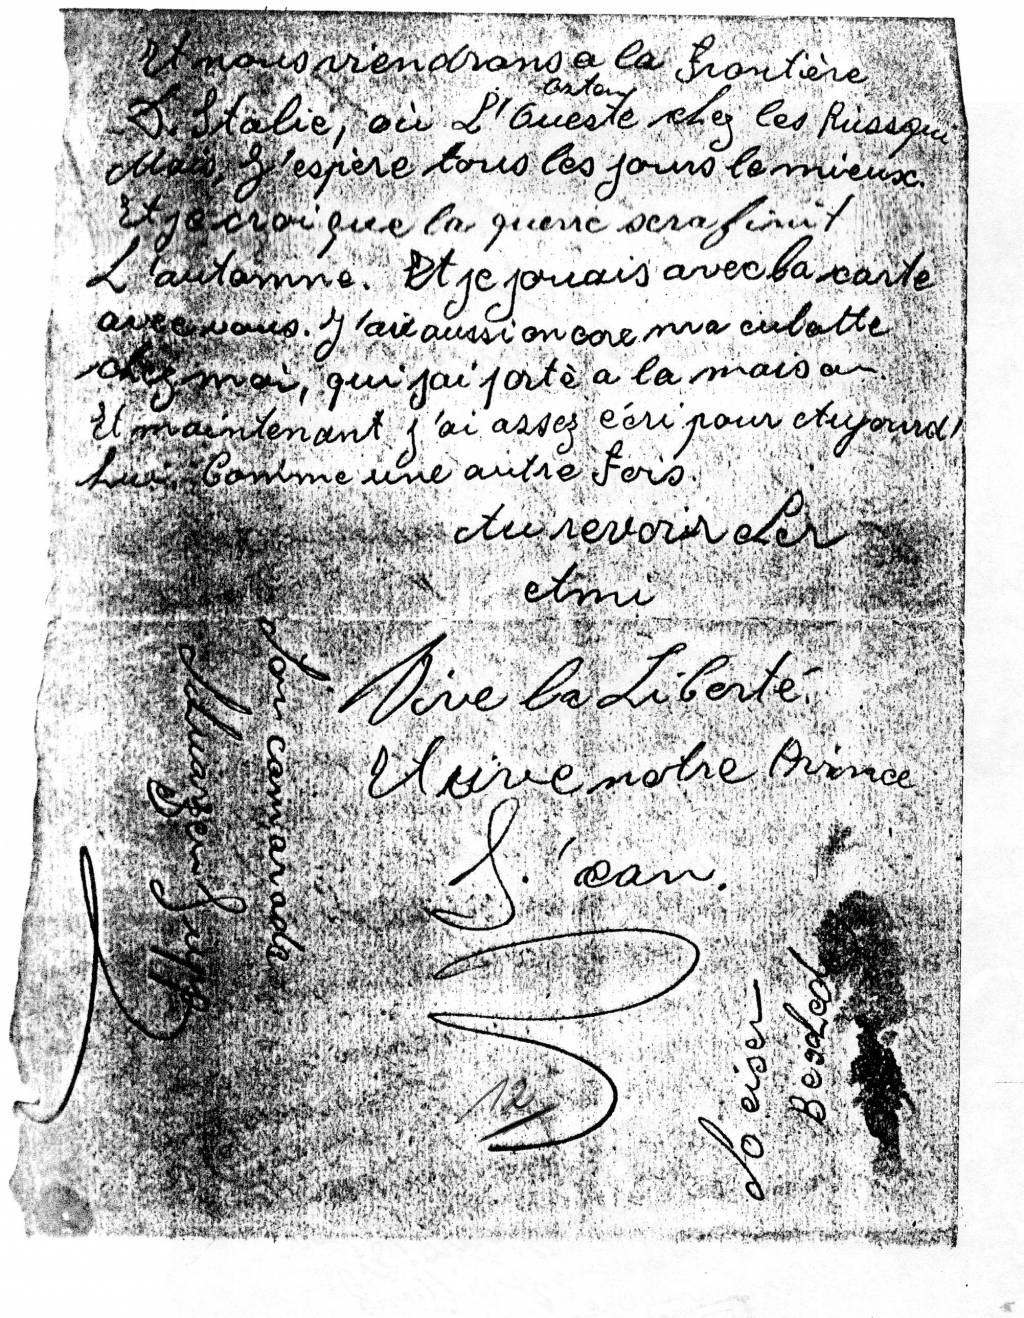 Et nous viendrons a la Frontière
D. Italie, où L'Oueste chez les Russ qui
Mais, J'espère tous les jours le mieux.
Et je croi que la guerre sera finit
L'automne. Et je jouais avec la carte
avec vous. J'ai aussi oncore ma culotte
chez moi, qui j'ai porté a la maison.
Et maintenant j'ai assez écri pour Aujourd'
hui. Comme une autre Fois.
Au revoir Ler
Ami
Vive la Liberté.
Et vive notre Prince
J. éan.
12
Ton camarade
Loeiser